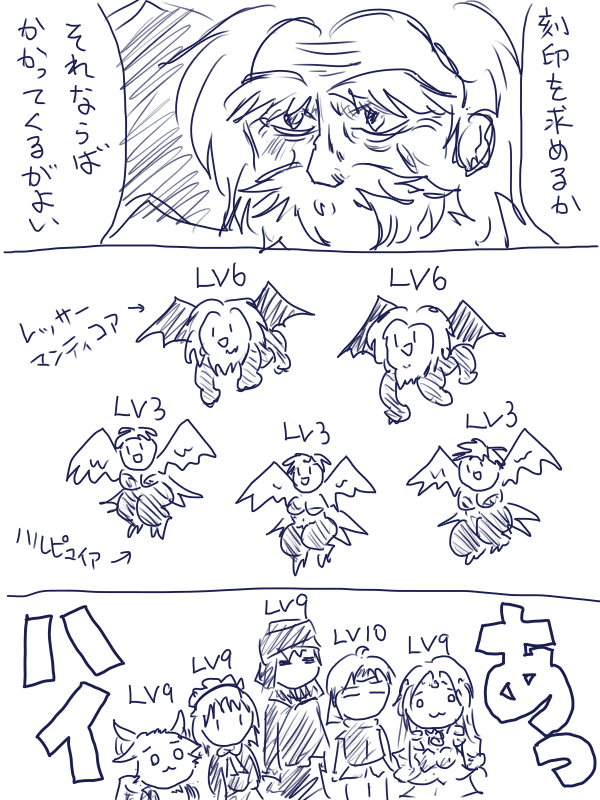 刻印を求めるか
それならば
かかってくるがよい
LV6
LV6
レッサー
マンティコア
LV3
LV3
LV3
ハルピュイア
あっ
LV9
LV10
LV9
LV9
LV9
ハイ